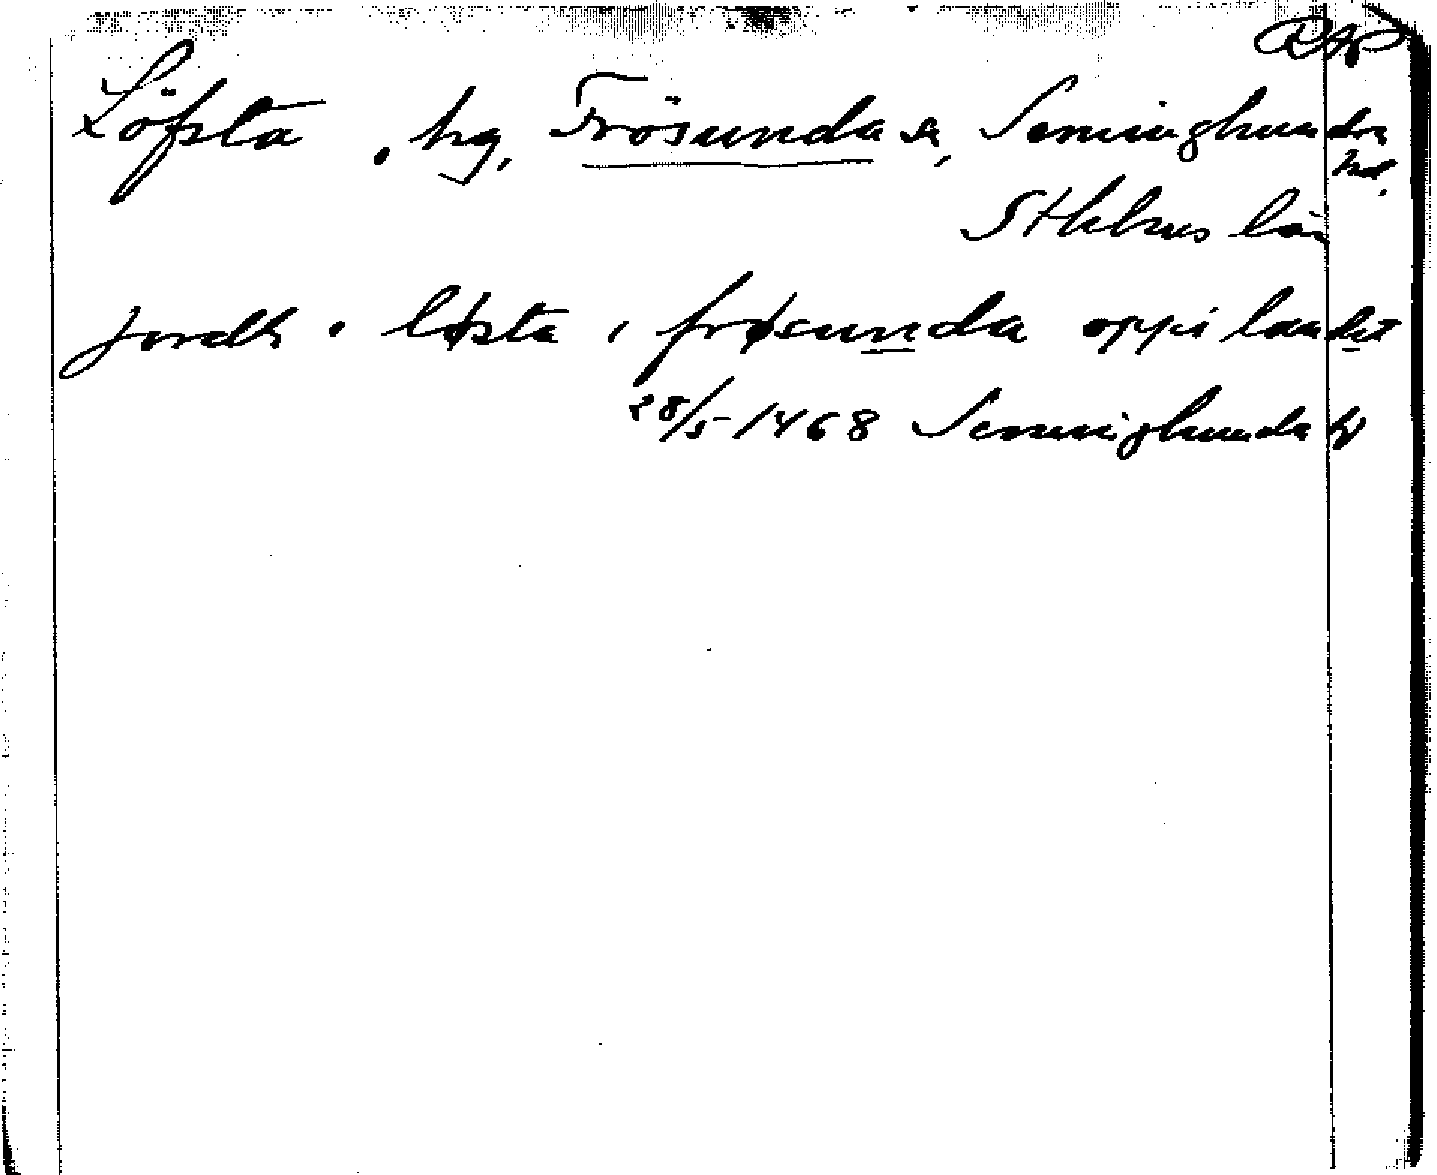 RAP
Löfsta, hg, Frösunda sn, Seminghundra
hd.
Sthlms län
jordh i løsta i frøsunda oppi landit
28/5 1468 Seminghunda